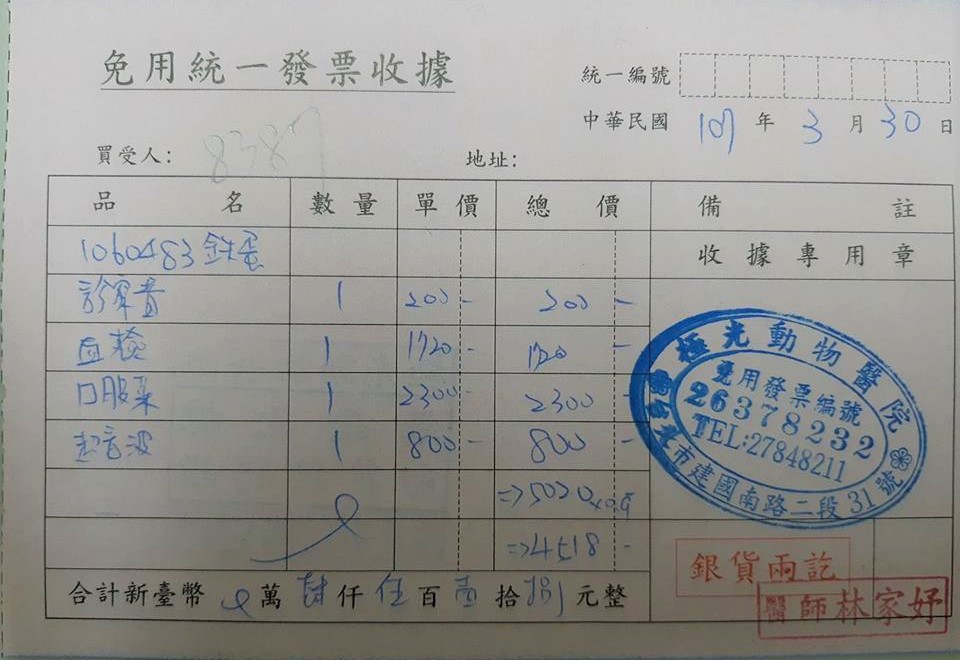 免用統一發票收據
統一編號
中華民國 107 年 3 月 30 日
買受人: 8387 地址:
品名 數量 單價 總價 備註
1060483 鉄蛋 收據專用章
診察費 1 200- 200-
血檢 1 1720- 1720-
口服藥 1 2300- 2300-
超音波 1 800- 800-
=>5020 x0.9
=>4518-
合計新臺幣 萬 肆 仟 伍 百 壹 拾 捌 元整
極光動物醫院
免用發票編號
26378232
TEL:27848211
市建國南路二段31號
銀貨兩訖
醫師林家妤